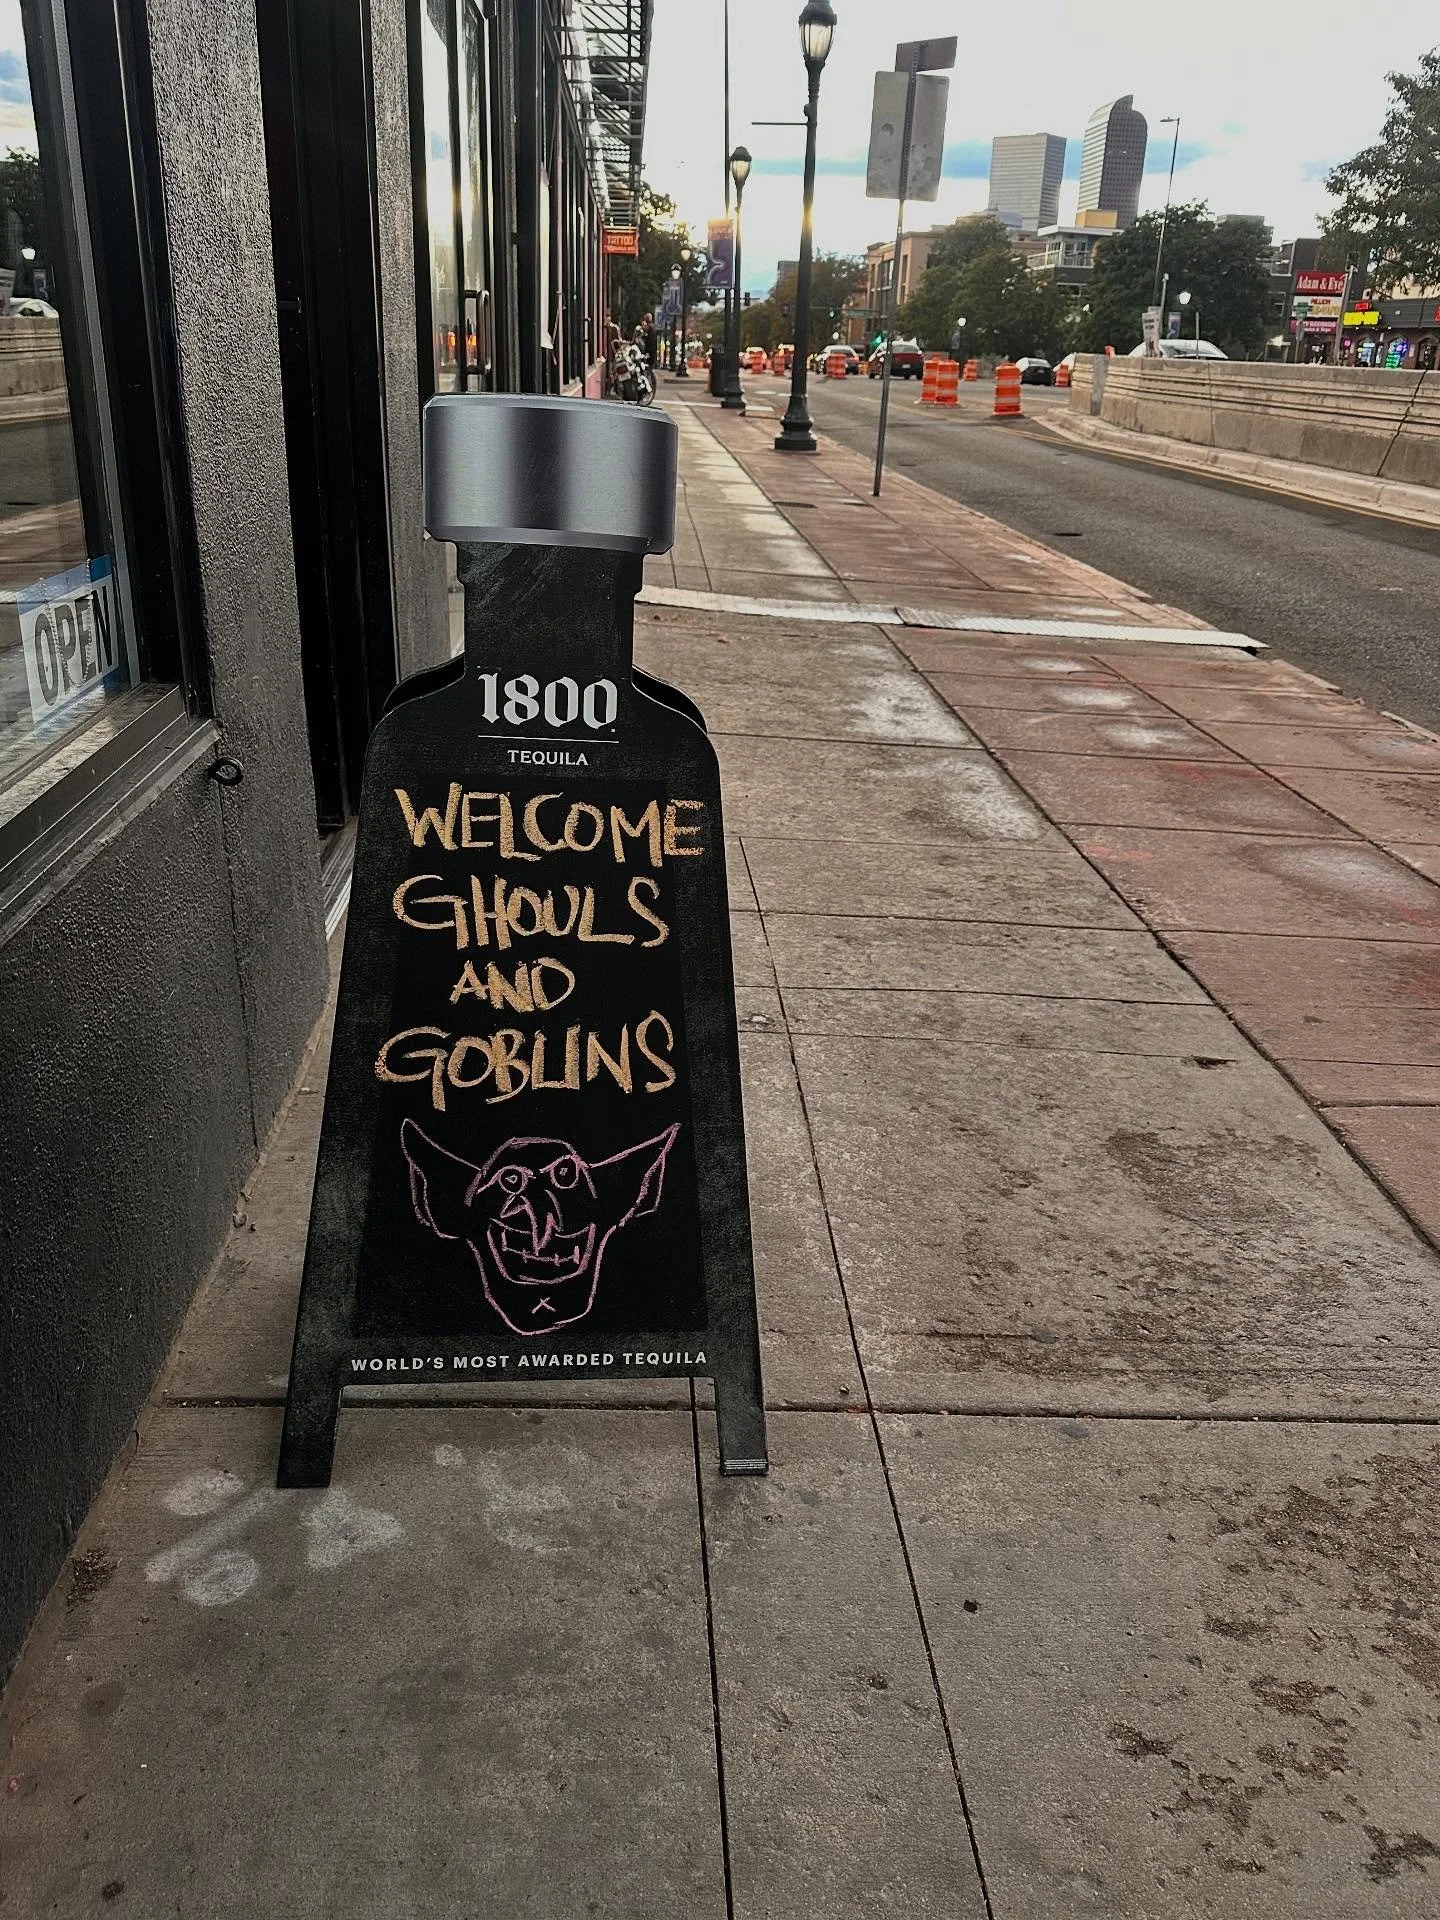 1800
TEQUILA
WELCOME
GHOULS
AND
GOBLINS
WORLD'S MOST AWARDED TEQUILA
OPEN
TATTOO
Adam & Eve